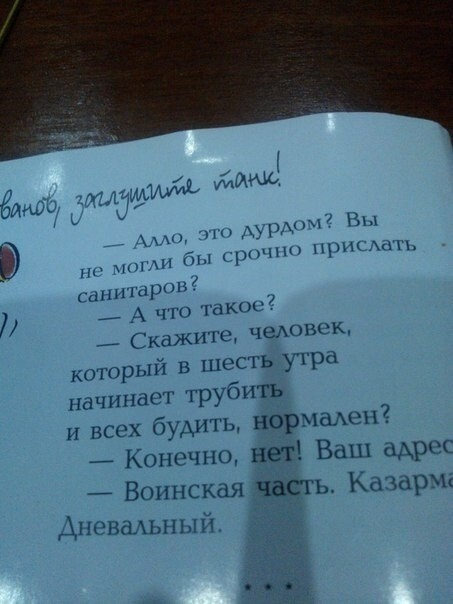 ванов, заглушите танк!
— Алло, это дурдом? Вы
не могли бы срочно прислать
санитаров?
— А что такое?
— Скажите, человек,
который в шесть утра
начинает трубить
и всех будить, нормален?
— Конечно, нет! Ваш адрес
— Воинская часть. Казарма
Дневальный.
• • •